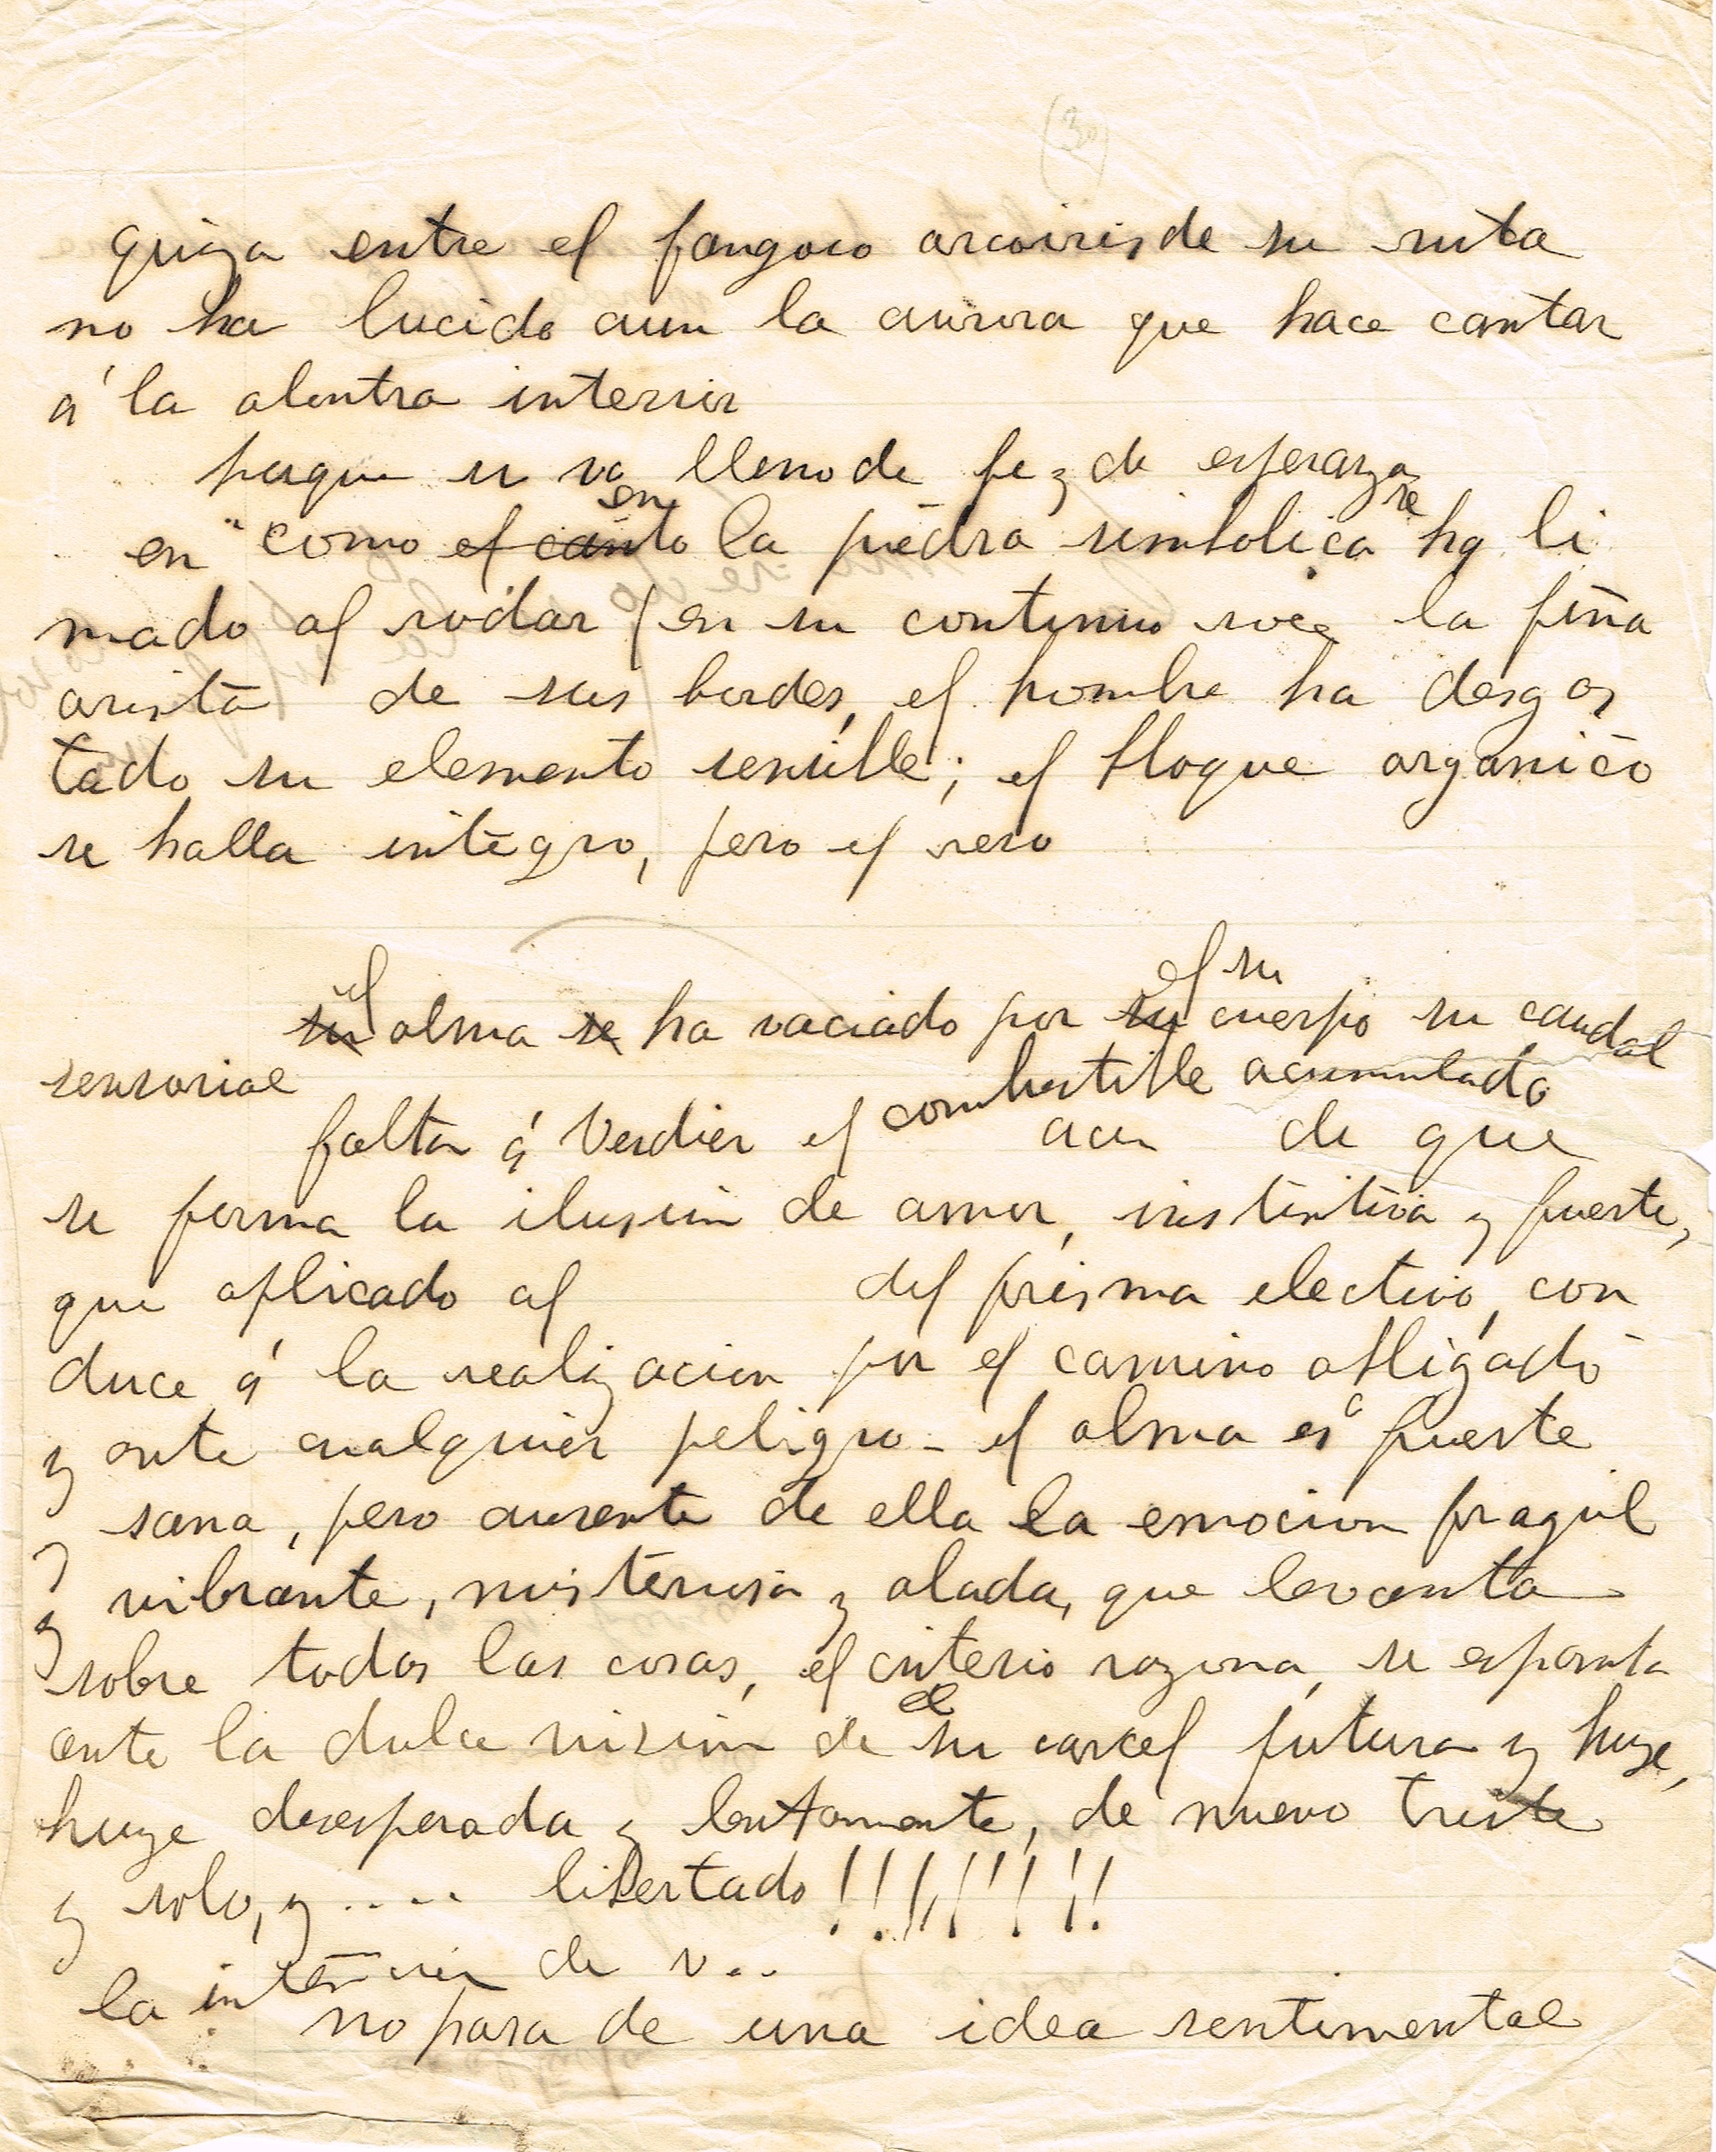 (30)
quiza entre el fangoso arcoiris de su ruta
no ha lucido aun la aurora que hace cantar
á la alontra interior
porque si va lleno de fe y de esperanza
en como el canto en la piedra simbolica se ha li
mado al rodar en su continuo roce la fina
arista de sus bordes, el hombre ha desgas
tado su elemento sensible; el bloque organico
se halla integro, pero el sero
el el su
su alma se ha vaciado por su cuerpo su caudal
sensorial
combustible acumulado
falta á Verdier el aun de que
se forma la ilusion de amor, instintiva y fuerte,
que aplicado al del prisma electivo, con
duce á la realizacion por el camino obligado
y ante cualquier peligro - el alma es fuerte
y sana, pero ausente de ella la emocion fragil
y vibrante, misteriosa y alada, que levanta
sobre todas las cosas, el criterio razona, se espanta
el
ante la dulce vision de su carcel futura y huye,
huye desesperada y lentamente, de nuevo triste
y solo, y .... libertado !!!!!!!!
la intencion de v...
no pasa de una idea sentimental